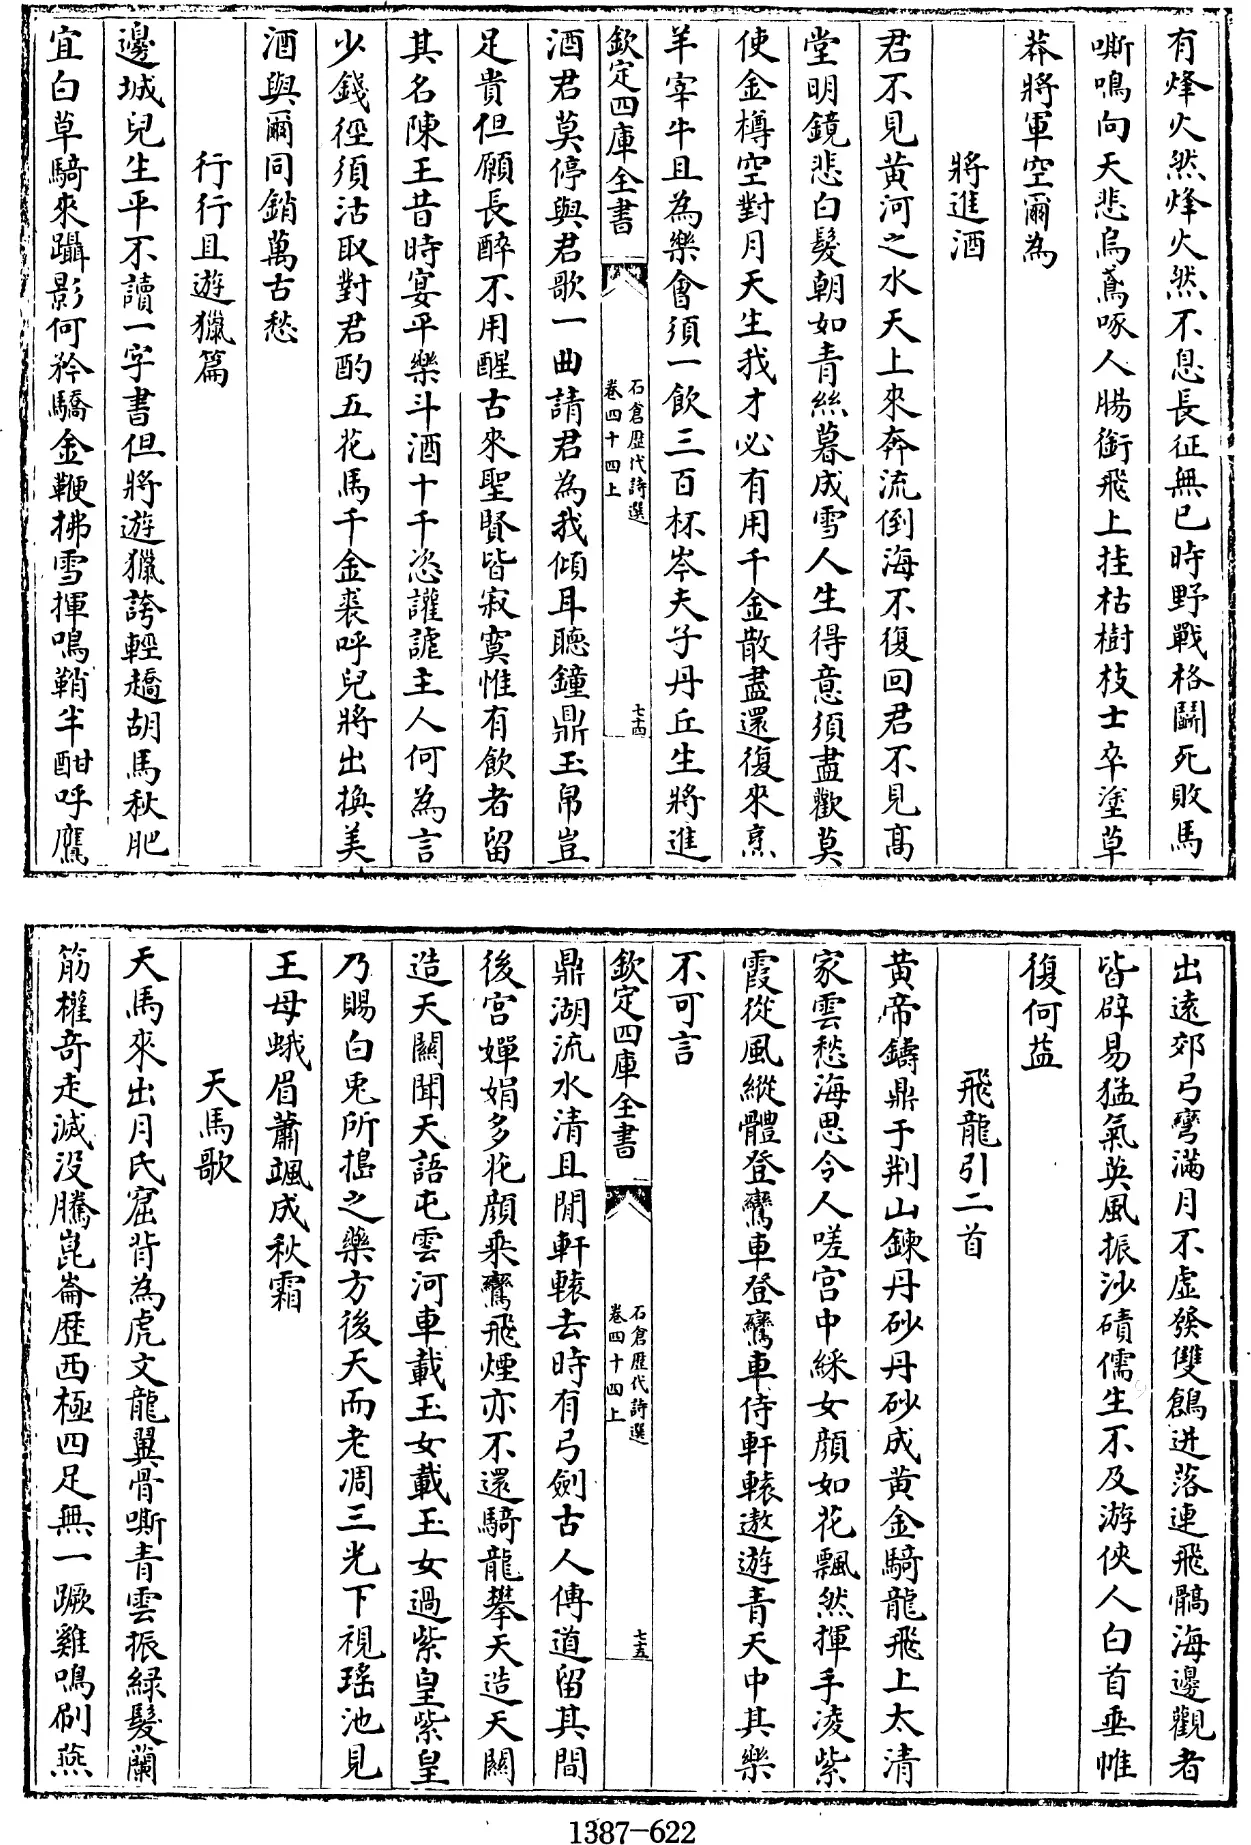 有烽火然烽火然不息長征無已時野戰格鬭死敗馬
嘶鳴向天悲烏鳶啄人腸銜飛上挂枯樹枝士卒塗草
莽將軍空爾為
將進酒
君不見黄河之水天上來奔流倒海不復回君不見髙
堂明鏡悲白髮朝如青絲暮成雪人生得意須盡歡莫
使金樽空對月天生我才必有用千金散盡還復來烹
羊宰牛且為樂會須一飲三百杯岑夫子丹丘生將進
欽定四庫全書
石倉歴代詩選
卷四十四上
七十四
酒君莫停與君歌一曲請君為我傾耳聽鐘鼎玉帛豈
足貴但願長醉不用醒古來聖賢皆寂寞惟有飲者留
其名陳王昔時宴平樂斗酒十千恣讙謔主人何為言
少錢徑須沽取對君酌五花馬千金裘呼兒將出換美
酒與爾同銷萬古愁
行行且遊獵篇
邊城兒生平不讀一字書但將遊獵誇輕趫胡馬秋肥
宜白草騎來躡影何矜驕金鞭拂雪揮鳴鞘半酣呼鷹
出遠郊弓彎滿月不虛發雙鶬迸落連飛髇海邊觀者
皆辟易猛氣英風振沙磧儒生不及游俠人白首垂帷
復何益
飛龍引二首
黄帝鑄鼎于荆山鍊丹砂丹砂成黄金騎龍飛上太清
家雲愁海思令人嗟宫中綵女顔如花飄然揮手凌紫
霞從風縱體登鸞車登鸞車侍軒轅遨遊青天中其樂
不可言
欽定四庫全書
石倉歴代詩選
卷四十四上
七十五
鼎湖流水清且閒軒轅去時有弓劍古人傳道留其間
後宫嬋娟多花顔乘鸞飛煙亦不還騎龍攀天造天關
造天關聞天語屯雲河車載玉女載玉女過紫皇紫皇
乃賜白兎所搗之藥方後天而老凋三光下視瑶池見
王母蛾眉蕭颯成秋霜
天馬歌
天馬來出月氏窟背為虎文龍翼骨嘶青雲振緑髮蘭
筋權竒走滅没騰崑崙歴西極四足無一蹶雞鳴刷燕
1387-622